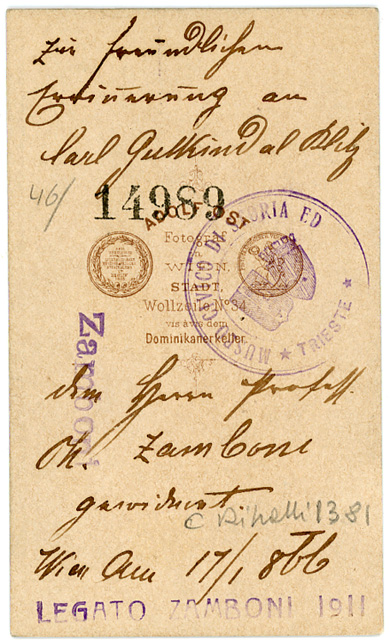 Zur freundlichen
Erinnerung an
Carl Gutkind al Blitz
46/
14989
ADOLF OST
Fotograf
WIEN,
STADT,
Wollzeile Nº 34
vis à vis dem
Dominikanerkeller.
MUSEO CIVICO DI STORIA ED
★ TRIESTE ★
Zamboni
dem Herrn Profess.
Ph. Zamboni
gewidmet
1381
Wien Am 17/1 866
LEGATO ZAMBONI 1911